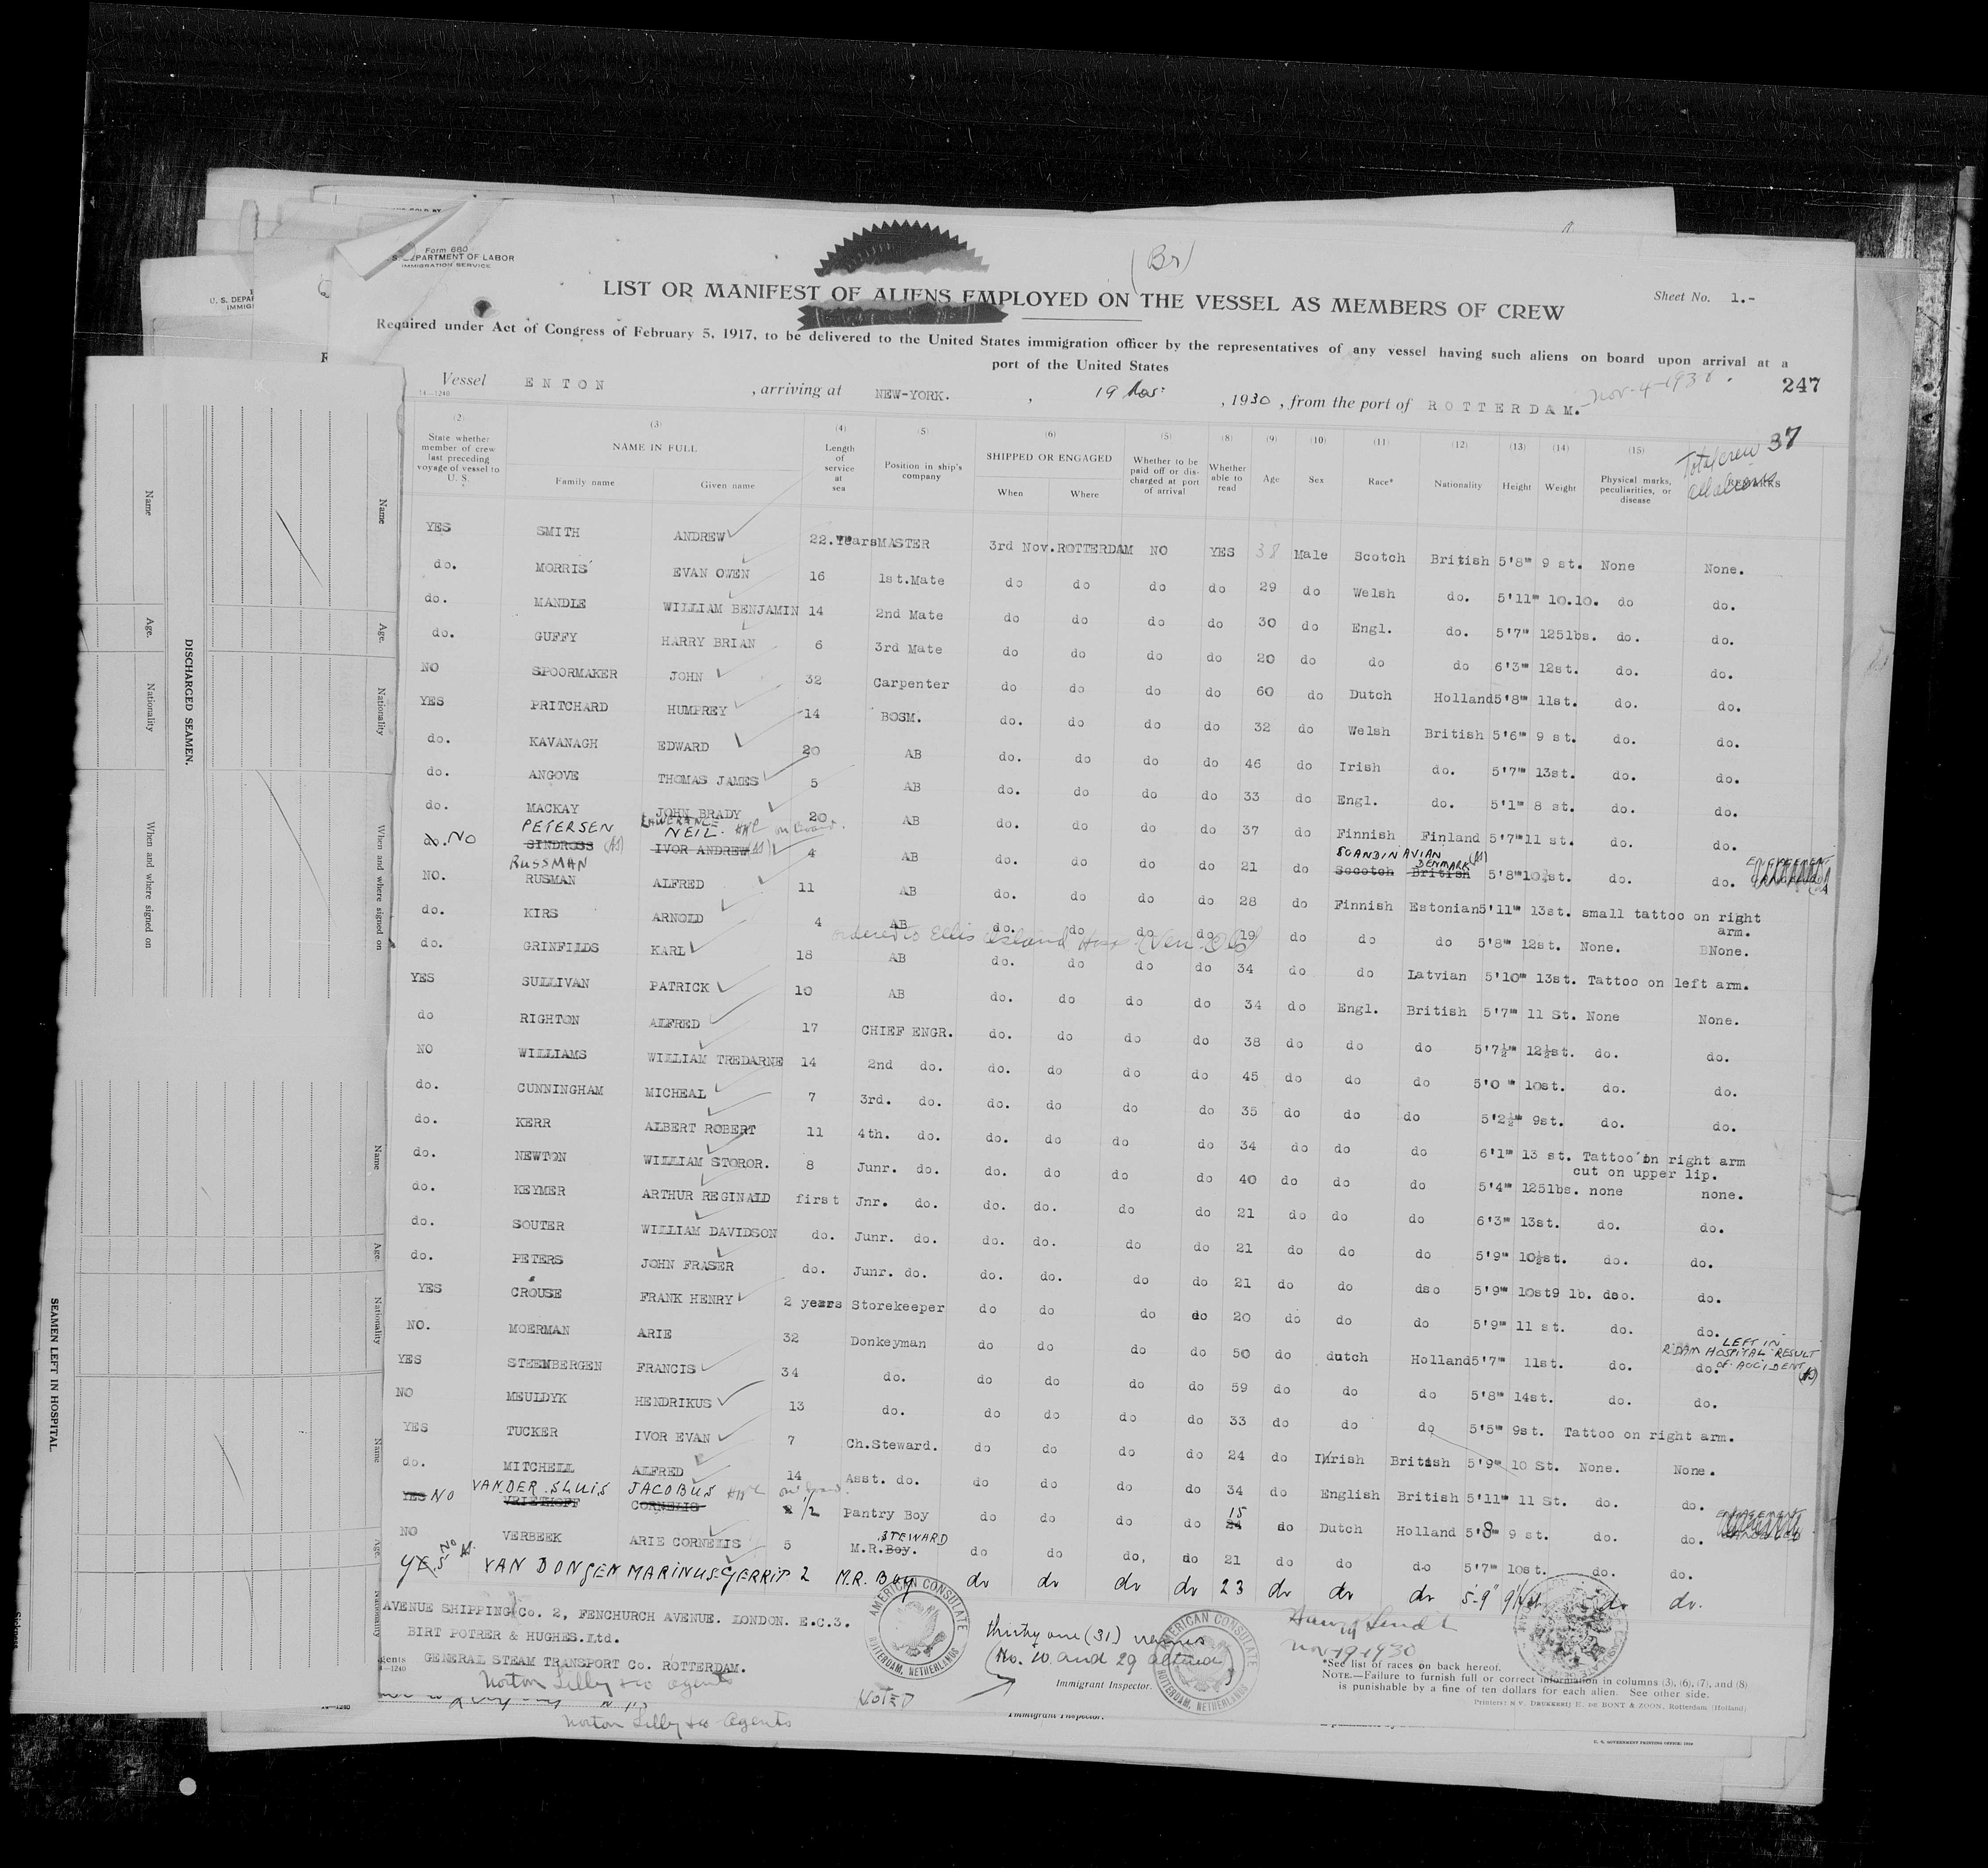 Form 680
U. S. DEPARTMENT OF LABOR
IMMIGRATION SERVICE
(Br)
LIST OR MANIFEST OF ALIENS EMPLOYED ON THE VESSEL AS MEMBERS OF CREW
Sheet No. 1.-
Required under Act of Congress of February 5, 1917, to be delivered to the United States immigration officer by the representatives of any vessel having such aliens on board upon arrival at a
port of the United States
Vessel ENTON , arriving at NEW-YORK. , 19 Nov. , 1930 , from the port of ROTTERDAM. Nov-4-1930. 247
14—1240
(2) (3) (4) (5) (6) (5) (8) (9) (10) (11) (12) (13) (14) (15)
Total crew 37
all aliens
State whether member of crew last preceding voyage of vessel to U. S. NAME IN FULL Family name Given name Length of service at sea Position in ship's company SHIPPED OR ENGAGED When Where Whether to be paid off or discharged at port of arrival Whether able to read Age Sex Race* Nationality Height Weight Physical marks, peculiarities, or disease REMARKS
YES SMITH ANDREW 22.Years MASTER 3rd Nov. ROTTERDAM NO YES 38 Male Scotch British 5'8" 9 st. None None.
do. MORRIS EVAN OWEN 16 1st.Mate do do do do 29 do Welsh do. 5'11" 10.10. do do.
do. MANDLE WILLIAM BENJAMIN 14 2nd Mate do do do do 30 do Engl. do. 5'7" 125lbs. do. do.
do. GUFFY HARRY BRIAN 6 3rd Mate do do do do 20 do do do 6'3" 12st. do. do.
NO SPOORMAKER JOHN 32 Carpenter do do do do 60 do Dutch Holland 5'8" 11st. do. do.
YES PRITCHARD HUMFREY 14 BOSM. do. do do do 32 do Welsh British 5'6" 9 st. do. do.
do. KAVANAGH EDWARD 20 AB do. do do do 46 do Irish do. 5'7" 13st. do. do.
do. ANGOVE THOMAS JAMES 5 AB do. do do do 33 do Engl. do. 5'1" 8 st. do. do.
do. MACKAY JOHN BRADY 20 AB do. do do do 37 do Finnish Finland 5'7" 11 st. do. do.
PETERSEN LAWERANCE NEIL. on Board.
do. NO SINDROSS (AS) IVOR ANDREW (AS) 4 AB do. do do do 21 do SCANDINAVIAN Socotch DENMARK (AS) British 5'8" 10½st. do. do. ENGAGEMENT
RUSSMAN
NO. RUSMAN ALFRED 11 AB do. do do do 28 do Finnish Estonian 5'11" 13st. small tattoo on right arm.
do. KIRS ARNOLD 4 AB do. do do do 19 do do do 5'8" 12st. None. None.
ordered to Ellis Island Hosp. (Ven. Dis)
do. GRINFILDS KARL 18 AB do. do do do 34 do do Latvian 5'10" 13st. Tattoo on left arm.
YES SULLIVAN PATRICK 10 AB do. do do do 34 do Engl. British 5'7" 11 St. None None.
do RIGHTON ALFRED 17 CHIEF ENGR. do. do do do 38 do do do 5'7½" 12½st. do. do.
NO WILLIAMS WILLIAM TREDARNE 14 2nd do. do. do do do 45 do do do 5'0 " 10st. do. do.
do. CUNNINGHAM MICHEAL 7 3rd. do. do. do do do 35 do do do 5'2½" 9st. do. do.
do. KERR ALBERT ROBERT 11 4th. do. do. do do do 34 do do do 6'1" 13 st. Tattoo on right arm cut on upper lip.
do. NEWTON WILLIAM STOROR. 8 Junr. do. do. do do do 40 do do do 5'4" 125lbs. none none.
do. KEYMER ARTHUR REGINALD first Jnr. do. do. do. do do 21 do do do 6'3" 13st. do. do.
do. SOUTER WILLIAM DAVIDSON do. Junr. do. do. do. do do 21 do do do 5'9" 10½st. do. do.
do. PETERS JOHN FRASER do. Junr. do. do. do. do do 21 do do dso 5'9" 10st9 lb. dso. do.
YES CROUSE FRANK HENRY 2 years Storekeeper do do do do 20 do do do 5'9" 11 st. do. do.
NO. MOERMAN ARIE 32 Donkeyman do do do do 50 do dutch Holland 5'7" 11st. do. do. LEFT IN R'DAM HOSPITAL RESULT OF ACCIDENT (AS)
YES STEENBERGEN FRANCIS 34 do. do do do do 59 do do do 5'8" 14st. do. do.
NO MEULDYK HENDRIKUS 13 do. do do do do 33 do do do 5'5" 9st. Tattoo on right arm.
YES TUCKER IVOR EVAN 7 Ch.Steward. do do do do 24 do Irish British 5'9" 10 St. None. None.
do. MITCHELL ALFRED 14 Asst. do. do do do do 34 do English British 5'11" 11 St. do. do.
VANDER SLUIS JACOBUS on board.
YES NO CORNELIS 1/2 Pantry Boy do do do do 15 24 do Dutch Holland 5'8" 9 st. do. do. ENGAGEMENT CANCELLED
NO VERBEEK ARIE CORNELIS 5 M.R. Boy. STEWARD do do do, do 21 do do do 5'7" 10st. do. do.
YES NO VAN DONGEN MARINUS-GERRIT 2 M.R. Boy do do do do 23 do do do 5'-9" 9½st do do.
AVENUE SHIPPING Co. 2, FENCHURCH AVENUE. LONDON. E.C.3.
BIRT POTRER & HUGHES.Ltd.
GENERAL STEAM TRANSPORT Co. ROTTERDAM.
Norton Lilly & Co agents
NOTED
AMERICAN CONSULATE ROTTERDAM, NETHERLANDS
thirty one (31) names
(No. 10 and 29 altered)
Immigrant Inspector.
AMERICAN CONSULATE ROTTERDAM, NETHERLANDS
Nov-19-1930
*See list of races on back hereof.
NOTE.—Failure to furnish full or correct information in columns (3), (6), (7), and (8)
is punishable by a fine of ten dollars for each alien. See other side.
Printers: N.V. DRUKKERIJ E. DE BONT & ZOON, Rotterdam (Holland)
Norton Lilly & Co Agents
Immigrant Inspector.
U. S. GOVERNMENT PRINTING OFFICE
DISCHARGED SEAMEN.
Name Age. Nationality When and where signed on
Name Age. Nationality When and where signed on
SEAMEN LEFT IN HOSPITAL.
Name Age. Nationality
Name Age. Nationality
Sickness